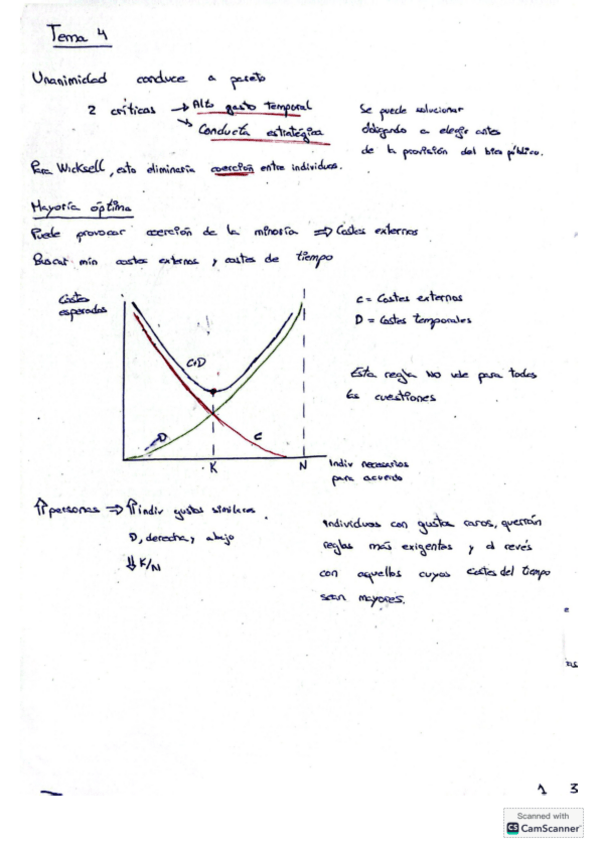 Tema 4
Unanimidad conduce a pareto
2 críticas → Alto gasto temporal
→ Conducta estratégica
Se puede solucionar
obligando a elegir antes
de la provisión del bien público.
Para Wicksell, esto eliminaría coerción entre individuos.
Mayoría óptima
Puede provocar coerción de la minoría ⇒ Costes externos
Buscar min costes externos y costes de tiempo
Costes
esperados
C+D
D
C
K
N
Indiv necesarios
para acuerdo
C = Costes externos
D = Costes temporales
Esta regla NO vale para todas
las cuestiones
⇑ personas ⇒ ⇑ indiv gustos similares.
D, derecha y abajo
⇓ K/N
Individuos con gustos caros, querrán
reglas más exigentes y al revés
con aquellos cuyos costes del tiempo
sean mayores.
1 3
Scanned with
CS CamScanner